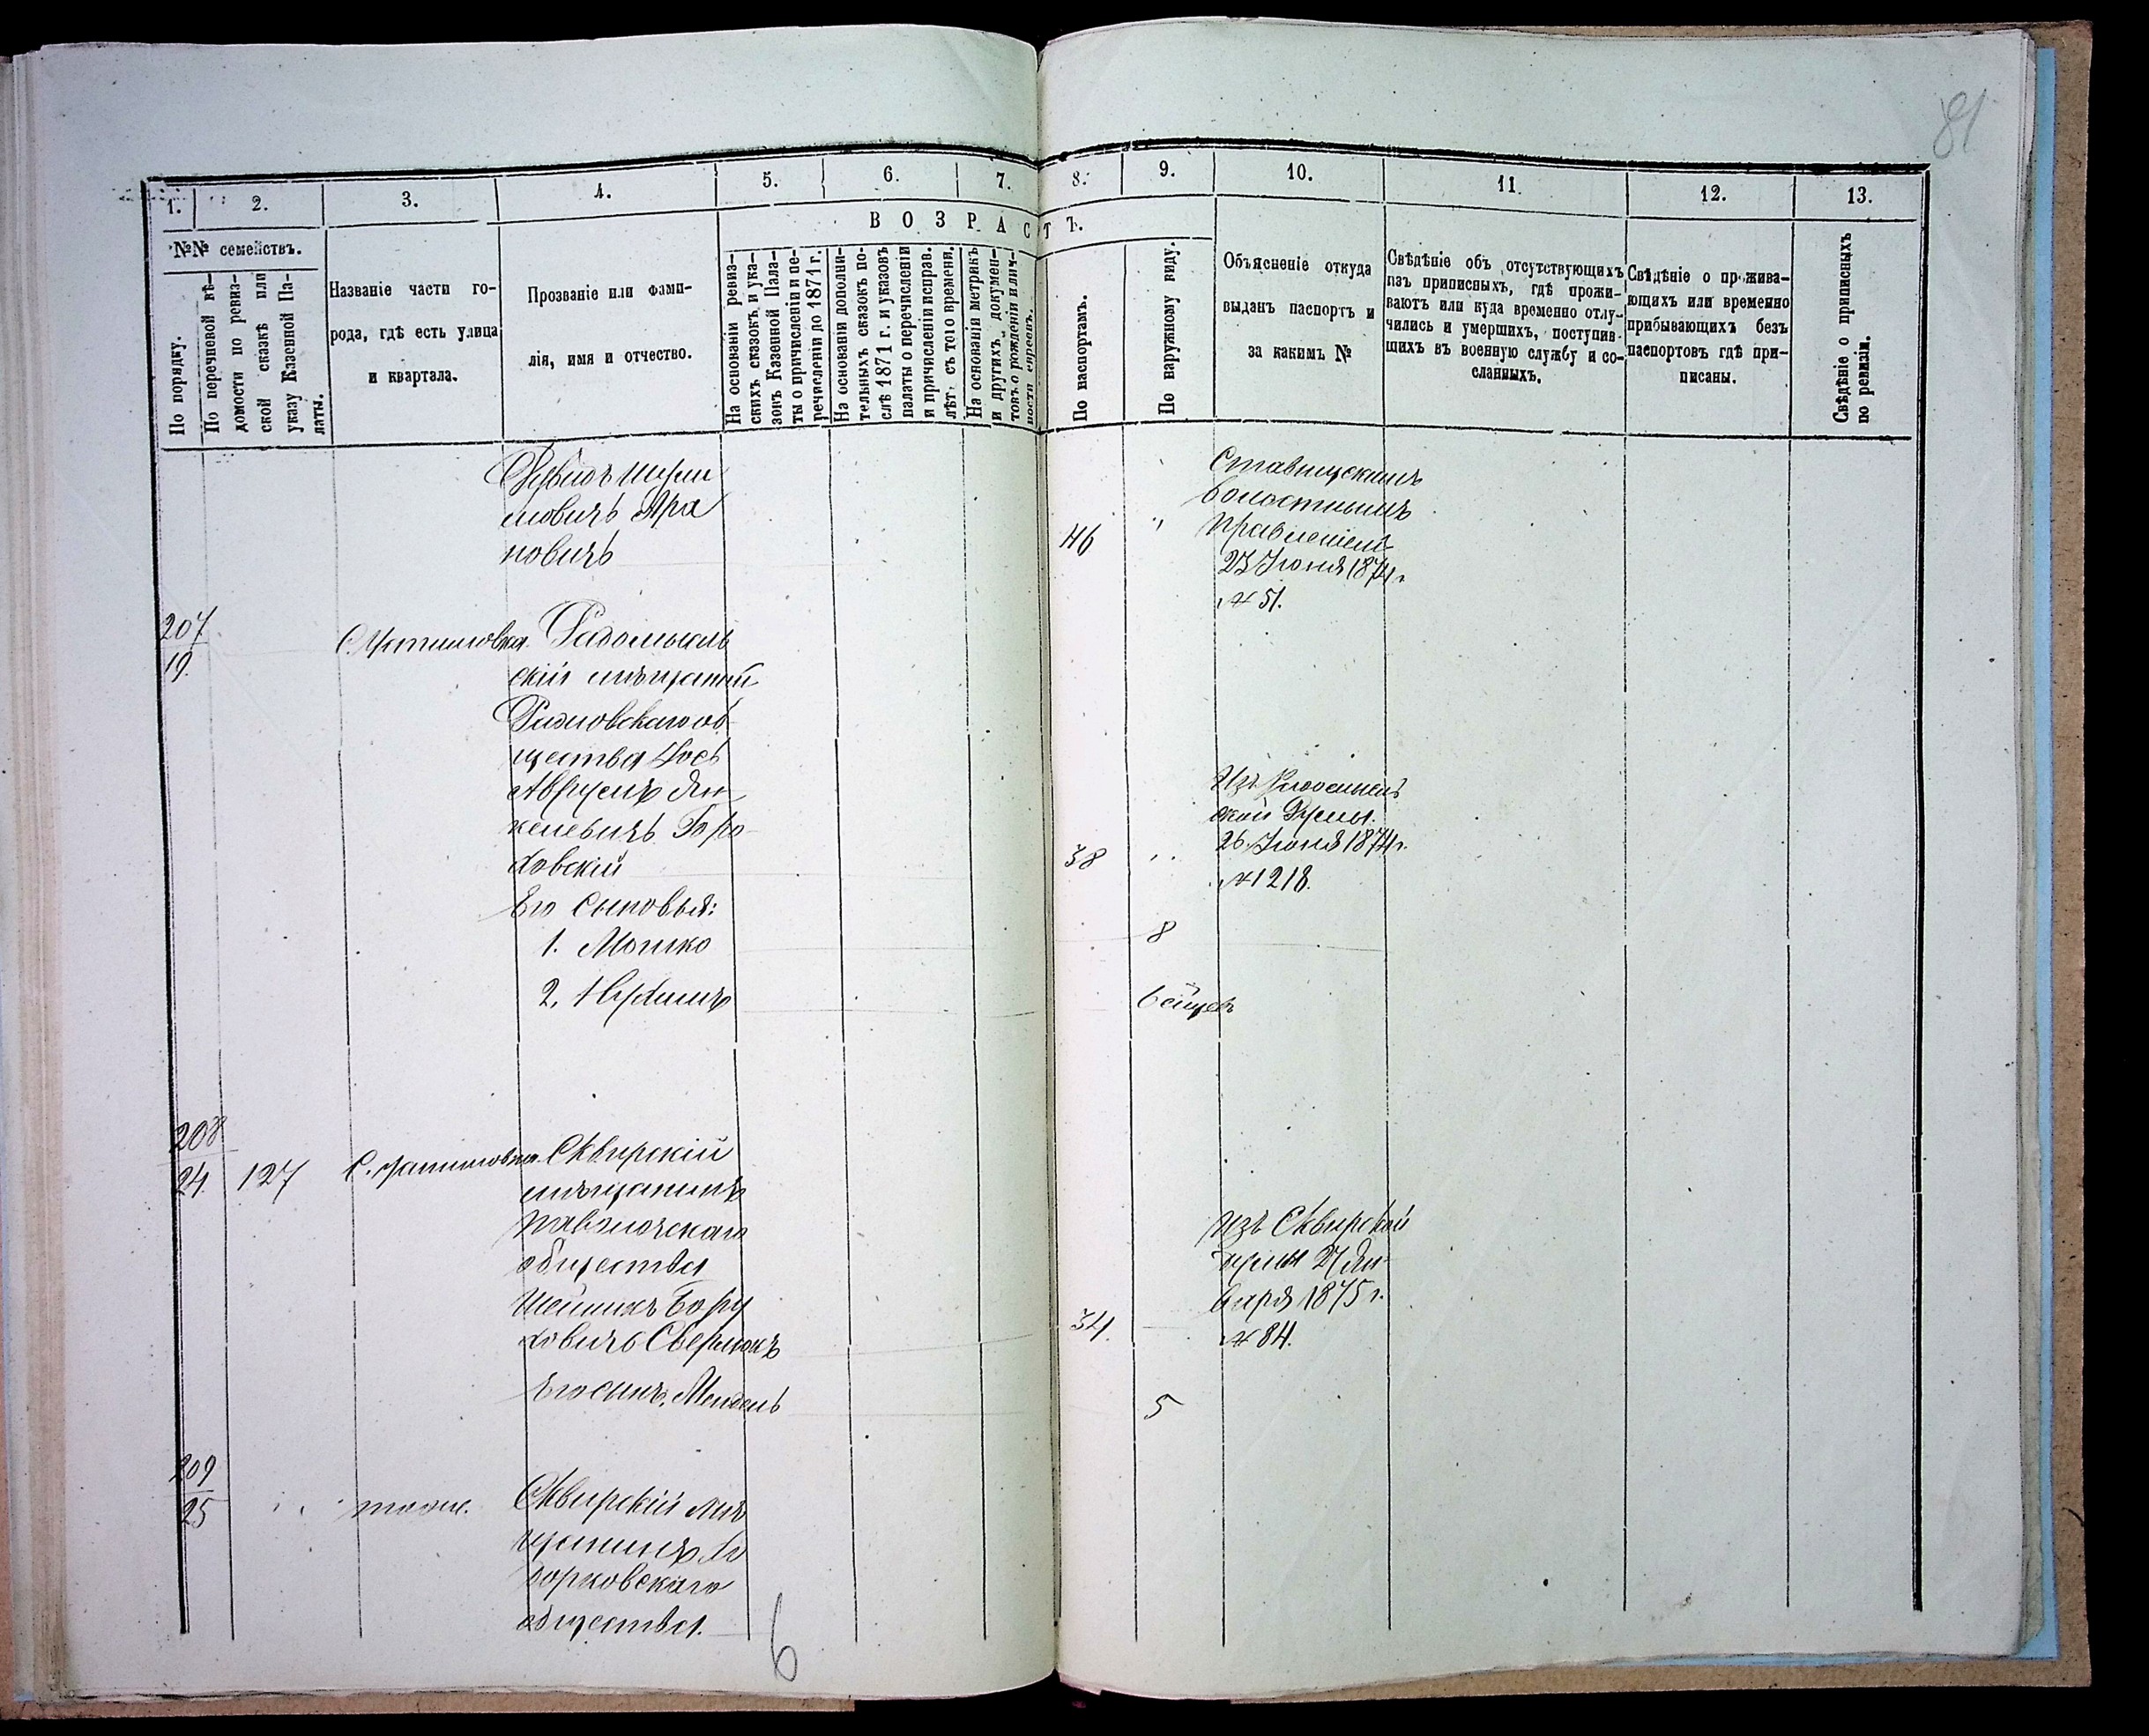 81
1. 2. 3. 4. 5. 6. 7. 8. 9. 10. 11. 12. 13.
ВОЗРАСТЪ.
№№ семействъ.
По порядку.
По перечневой вѣ-
домости по ревиз-
ской сказкѣ или
указу Казенной Па-
латы.
Названіе части го-
рода, гдѣ есть улица
и квартала.
Прозваніе или фами-
лія, имя и отчество.
На основаніи ревиз-
скихъ сказокъ и ука-
зовъ Казенной Пала-
ты о причисленіи и пе-
речисленіи до 1871 г.
На основаніи дополни-
тельныхъ сказокъ по-
слѣ 1871 г. и указовъ
палаты о перечисленіи
и причисленіи исправ.
лѣт. съ того времени.
На основаніи метрикъ
и другихъ докумен-
товъ о рожденіи и лич-
ности евреевъ.
По паспортамъ.
По наружному виду.
Объясненіе откуда
выданъ паспортъ и
за какимъ №
Свѣдѣніе объ отсутствующихъ
изъ приписныхъ, гдѣ прожи-
ваютъ или куда временно отлу-
чились и умершихъ, поступив-
шихъ въ военную службу и со-
сланныхъ.
Свѣдѣніе о прожива-
ющихъ или временно
прибывающихъ безъ
паспортовъ гдѣ при-
писаны.
Свѣдѣніе о приписныхъ
по ревизіи.
мовичъ Ара
новичъ
46
Ставищскимъ
волостнымъ
правленіемъ
23 Іюня 1874 г.
№ 51.
207
19.
С. Устимовка.
Радомысль
скій мѣщанинъ
общества Іось
Аврумъ Ян
келевичъ Горо
ховскій
38
26 Іюня 1874 г.
№ 1218.
Его сыновья:
1. Мошко
8
2. Нухимъ
6 мѣсяцев
208
24.
127
С. Устимовка.
Сквирскій
мѣщанинъ
Паволочскаго
общества
Бору
ховичъ
34.
изъ Сквирской
думы 27 Ян
варя 1875 г.
№ 84.
Его сынъ, Мендель
5
209
25
тоже.
Сквирскій мѣ
щанинъ Хо
дорковскаго
общества.
6